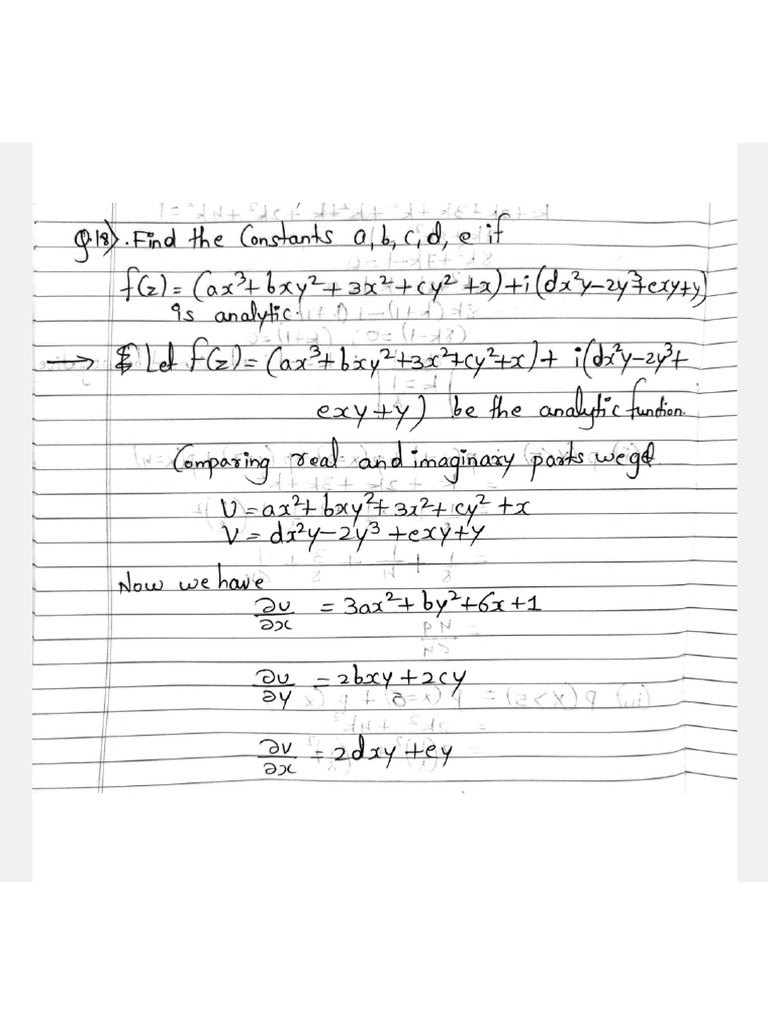 Q.18). Find the Constants a, b, c, d, e if
f(z) = (ax³ + bxy² + 3x² + cy² + x) + i (dx²y - 2y³ + exy + y)
is analytic.
→ Let f(z) = (ax³ + bxy² + 3x² + cy² + x) + i (dx²y - 2y³ +
exy + y) be the analytic function.
Comparing real and imaginary parts we get
U = ax² + bxy² + 3x² + cy² + x
V = dx²y - 2y³ + exy + y
Now we have
∂u/∂x = 3ax² + by² + 6x + 1
∂u/∂y = 2bxy + 2cy
∂v/∂x = 2dxy + ey